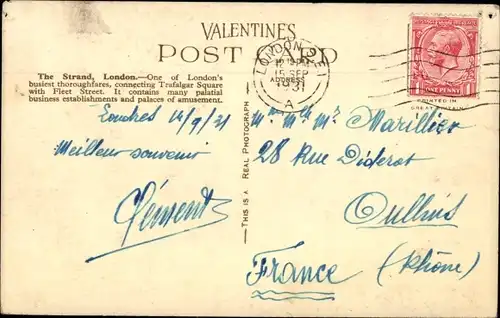 VALENTINES
POST CARD
The Strand, London.—One of London's
busiest thoroughfares, connecting Trafalgar Square
with Fleet Street. It contains many palatial
business establishments and palaces of amusement.
LONDON
12 15 PM
15 SEP
1931
A
ADDRESS
ONE PENNY
PRINTED IN
GREAT BRITAIN
THIS IS A REAL PHOTOGRAPH
Londres 14/9/31
Meilleur souvenir
Clément
Mr Mme Mr Marillier
28 Rue Diderot
Oullins
France (Rhône)